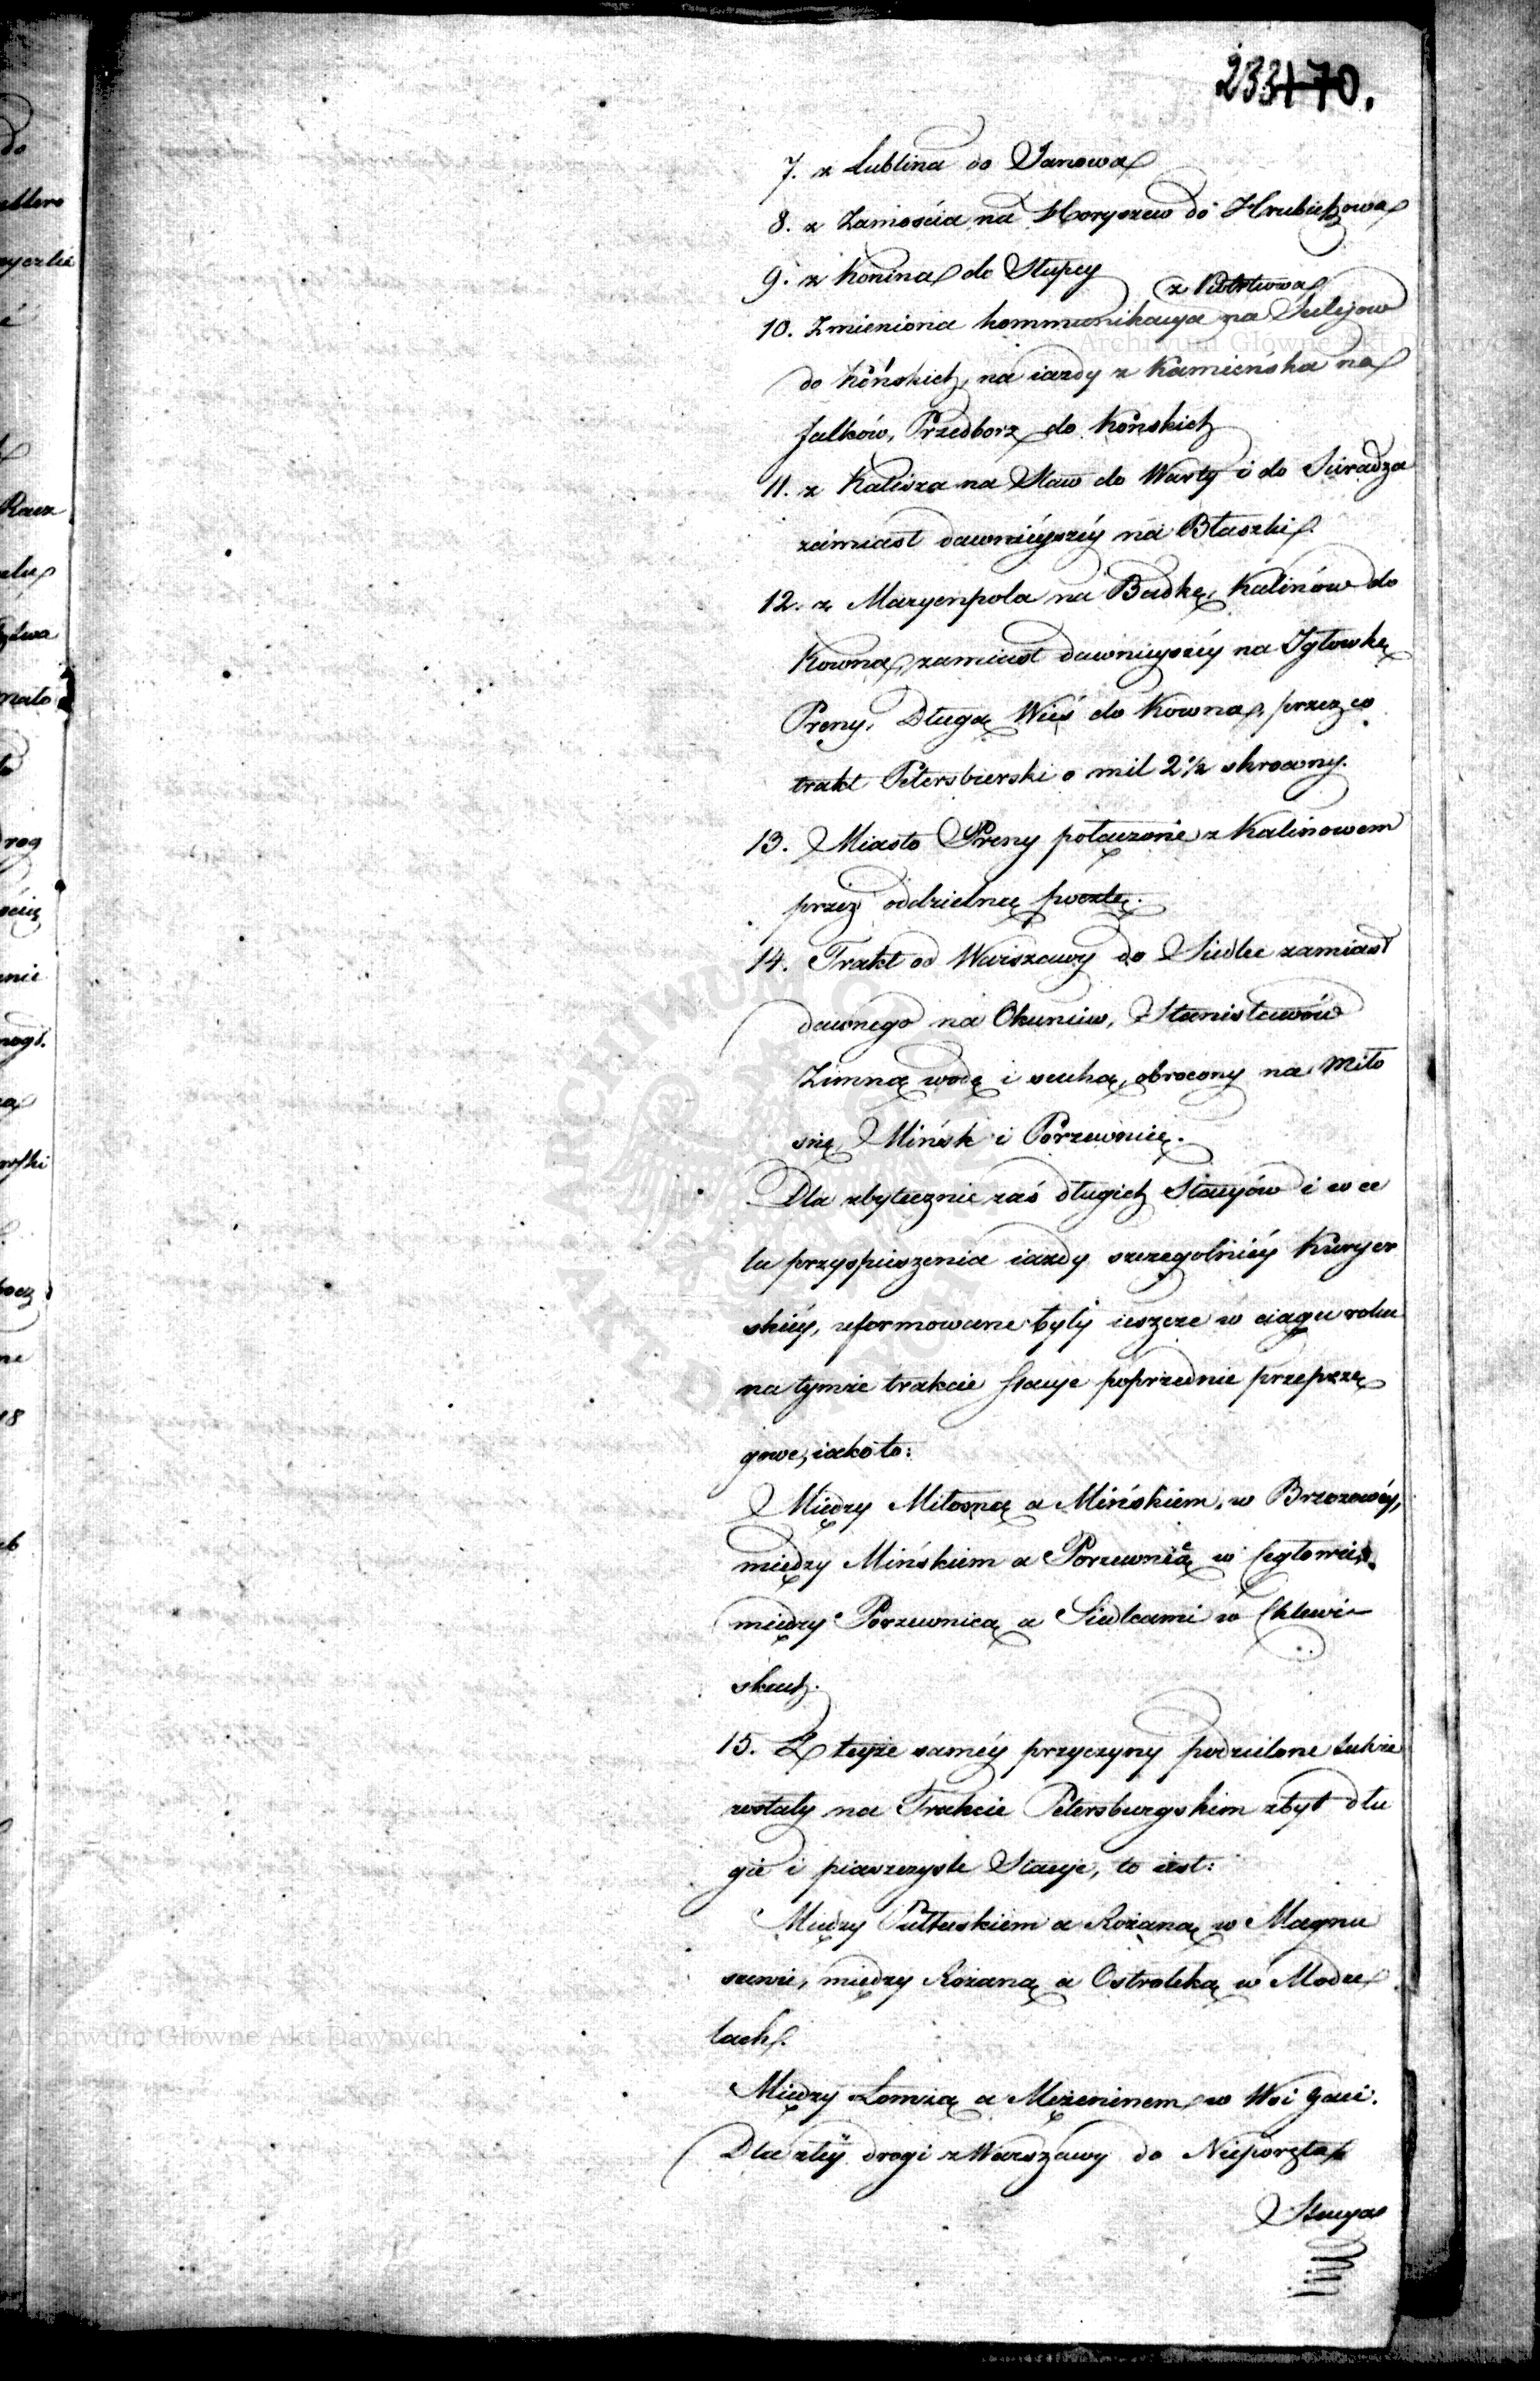 233 170.
7. z Lublina do Janowa
8. z Zamościa na Horyszew do Hrubieszowa
9. z Konina do Słupcy
z Piotrkowa
10. Zmieniona kommunikacya na Sulejow
do Końskich, na iazdy z Kamieńska na
Falków, Przedborz do Końskich
11. z Kalisza na Staw do Warty i do Sieradza
zamiast dawnieyszéy na Błaszki.
12. z Maryenpola na Budkę, Kalinów do
Kowna, zamiast dawnieyszéy na Jgłowkę
Preny, Długą Wieś do Kowna, przez co
trakt Petersbierski o mil 2½ skrocony.
13. Miasto Preny połączone z Kalinowem
przez oddzielną pocztę.
14. Trakt od Warszawy do Siedlec zamiast
dawnego na Okuniew, Stanisławów
Zimną wodę i suchą, obrocony na Miło
snę, Mińsk i Porzewnicę.
Dla zbytecznie zaś długich Stacyów i w ce
lu przyspieszenia iazdy szczegolniéy Kuryer
skiéy, uformowane były ieszcze w ciągu roku
na tymże trakcie stacye poprzednie przeprzę
gowe, iako to:
Między Miłosną a Mińskiem, w Brzozowéy,
między Mińskiem a Porzewnicą w Cegłowie,
między Porzewnicą a Siedlcami w Chlewi
skach.
15. Z teyże saméy przyczyny podzielone także
zostały na Trakcie Petersburgskim zbyt dłu
gie i piaszczyste Stacye, to iest:
Między Pułtuskiem a Rożaną w Magnu
szewie, między Rożaną a Ostrołeką w Modze
lach.
Między Łomżą a Mężeninem w Wsi Gaci.
Dla złéy drogi z Warszawy do Nieporęta
Stacya
Archiwum Główne Akt Dawnych
Archiwum Główne Akt Dawnych